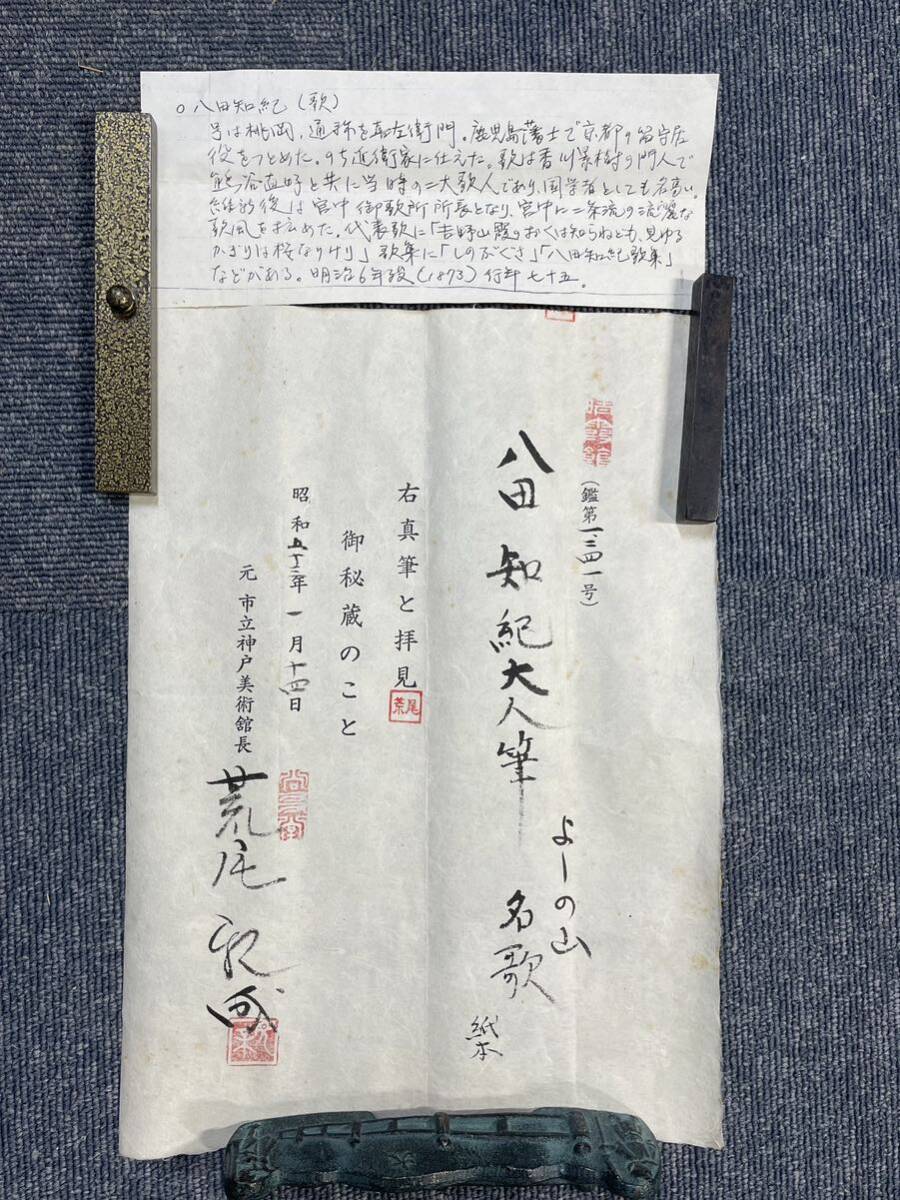 ○八田知紀(歌)
号は桃岡、通称を喜左衛門。鹿児島藩士で京都の留守居
役をつとめた。のち近衛家に仕えた。歌は香川景樹の門人で
熊谷直好と共に当時の二大歌人であり、国学者としても名高い。
維新後は宮中御歌所所長となり、宮中に二条流の流麗な
歌風を広めた。代表歌に「吉野山霞のおくは知らねども、見ゆる
かぎりは桜なりけり」歌集に「しのぶぐさ」「八田知紀歌集」
などがある。明治6年歿(1873)行年七十五。
(鑑第一三四一号)
八田知紀大人筆
よしの山
名歌
紙本
右真筆と拝見
荒尾
御秘蔵のこと
昭和五十三年一月十四日
元 市立神戸美術館長
荒尾親成